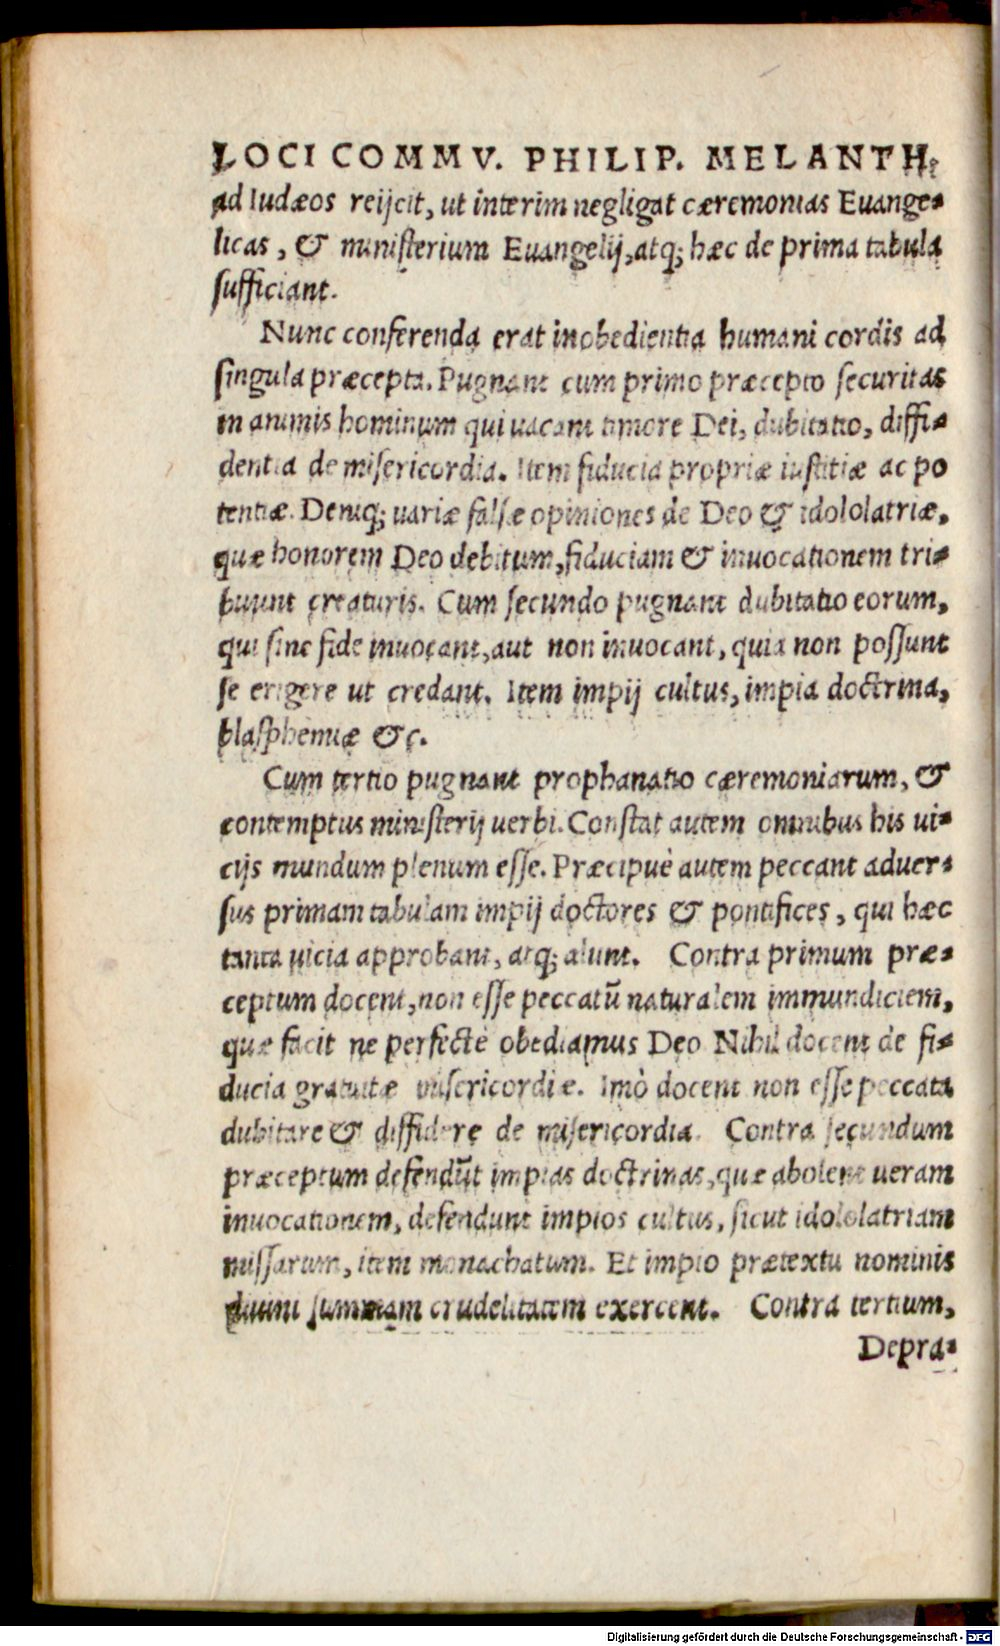 LOCI COMMV. PHILIP. MELANTH.
ad Iudæos reijcit, ut interim negligat cæremonias Euange-
licas, & ministerium Euangelij, atq; hæc de prima tabula
sufficiant.
Nunc conferenda erat inobedientia humani cordis ad
singula præcepta. Pugnant cum primo præcepto securitas
in animis hominum qui uacant timore Dei, dubitatio, diffi-
dentia de misericordia. Item fiducia propriæ iustitiæ ac po
tentiæ. Deniq; uariæ falsæ opiniones de Deo & idololatriæ,
quæ honorem Deo debitum, fiduciam & inuocationem tri-
buunt creaturis. Cum secundo pugnant dubitatio eorum,
qui sine fide inuocant, aut non inuocant, quia non possunt
se erigere ut credant. Item impij cultus, impia doctrina,
blasphemiæ &c.
Cum tertio pugnant prophanatio cæremoniarum, &
contemptus ministerij uerbi. Constat autem omnibus his ui-
cijs mundum plenum esse. Præcipuè autem peccant aduer-
sus primam tabulam impij doctores & pontifices, qui hæc
tanta uicia approbant, atq; alunt. Contra primum præ-
ceptum docent, non esse peccatū naturalem immundiciem,
quæ facit ne perfectè obediamus Deo Nihil docent de fi-
ducia gratuitæ misericordiæ. Imò docent non esse peccata
dubitare & diffidere de misericordia. Contra secundum
præceptum defendūt impias doctrinas, quæ abolent ueram
inuocationem, defendunt impios cultus, sicut idololatriam
missarum, item monachatum. Et impio prætextu nominis
diuini summam crudelitatem exercent. Contra tertium,
Depra-
Digitalisierung gefördert durch die Deutsche Forschungsgemeinschaft - DFG